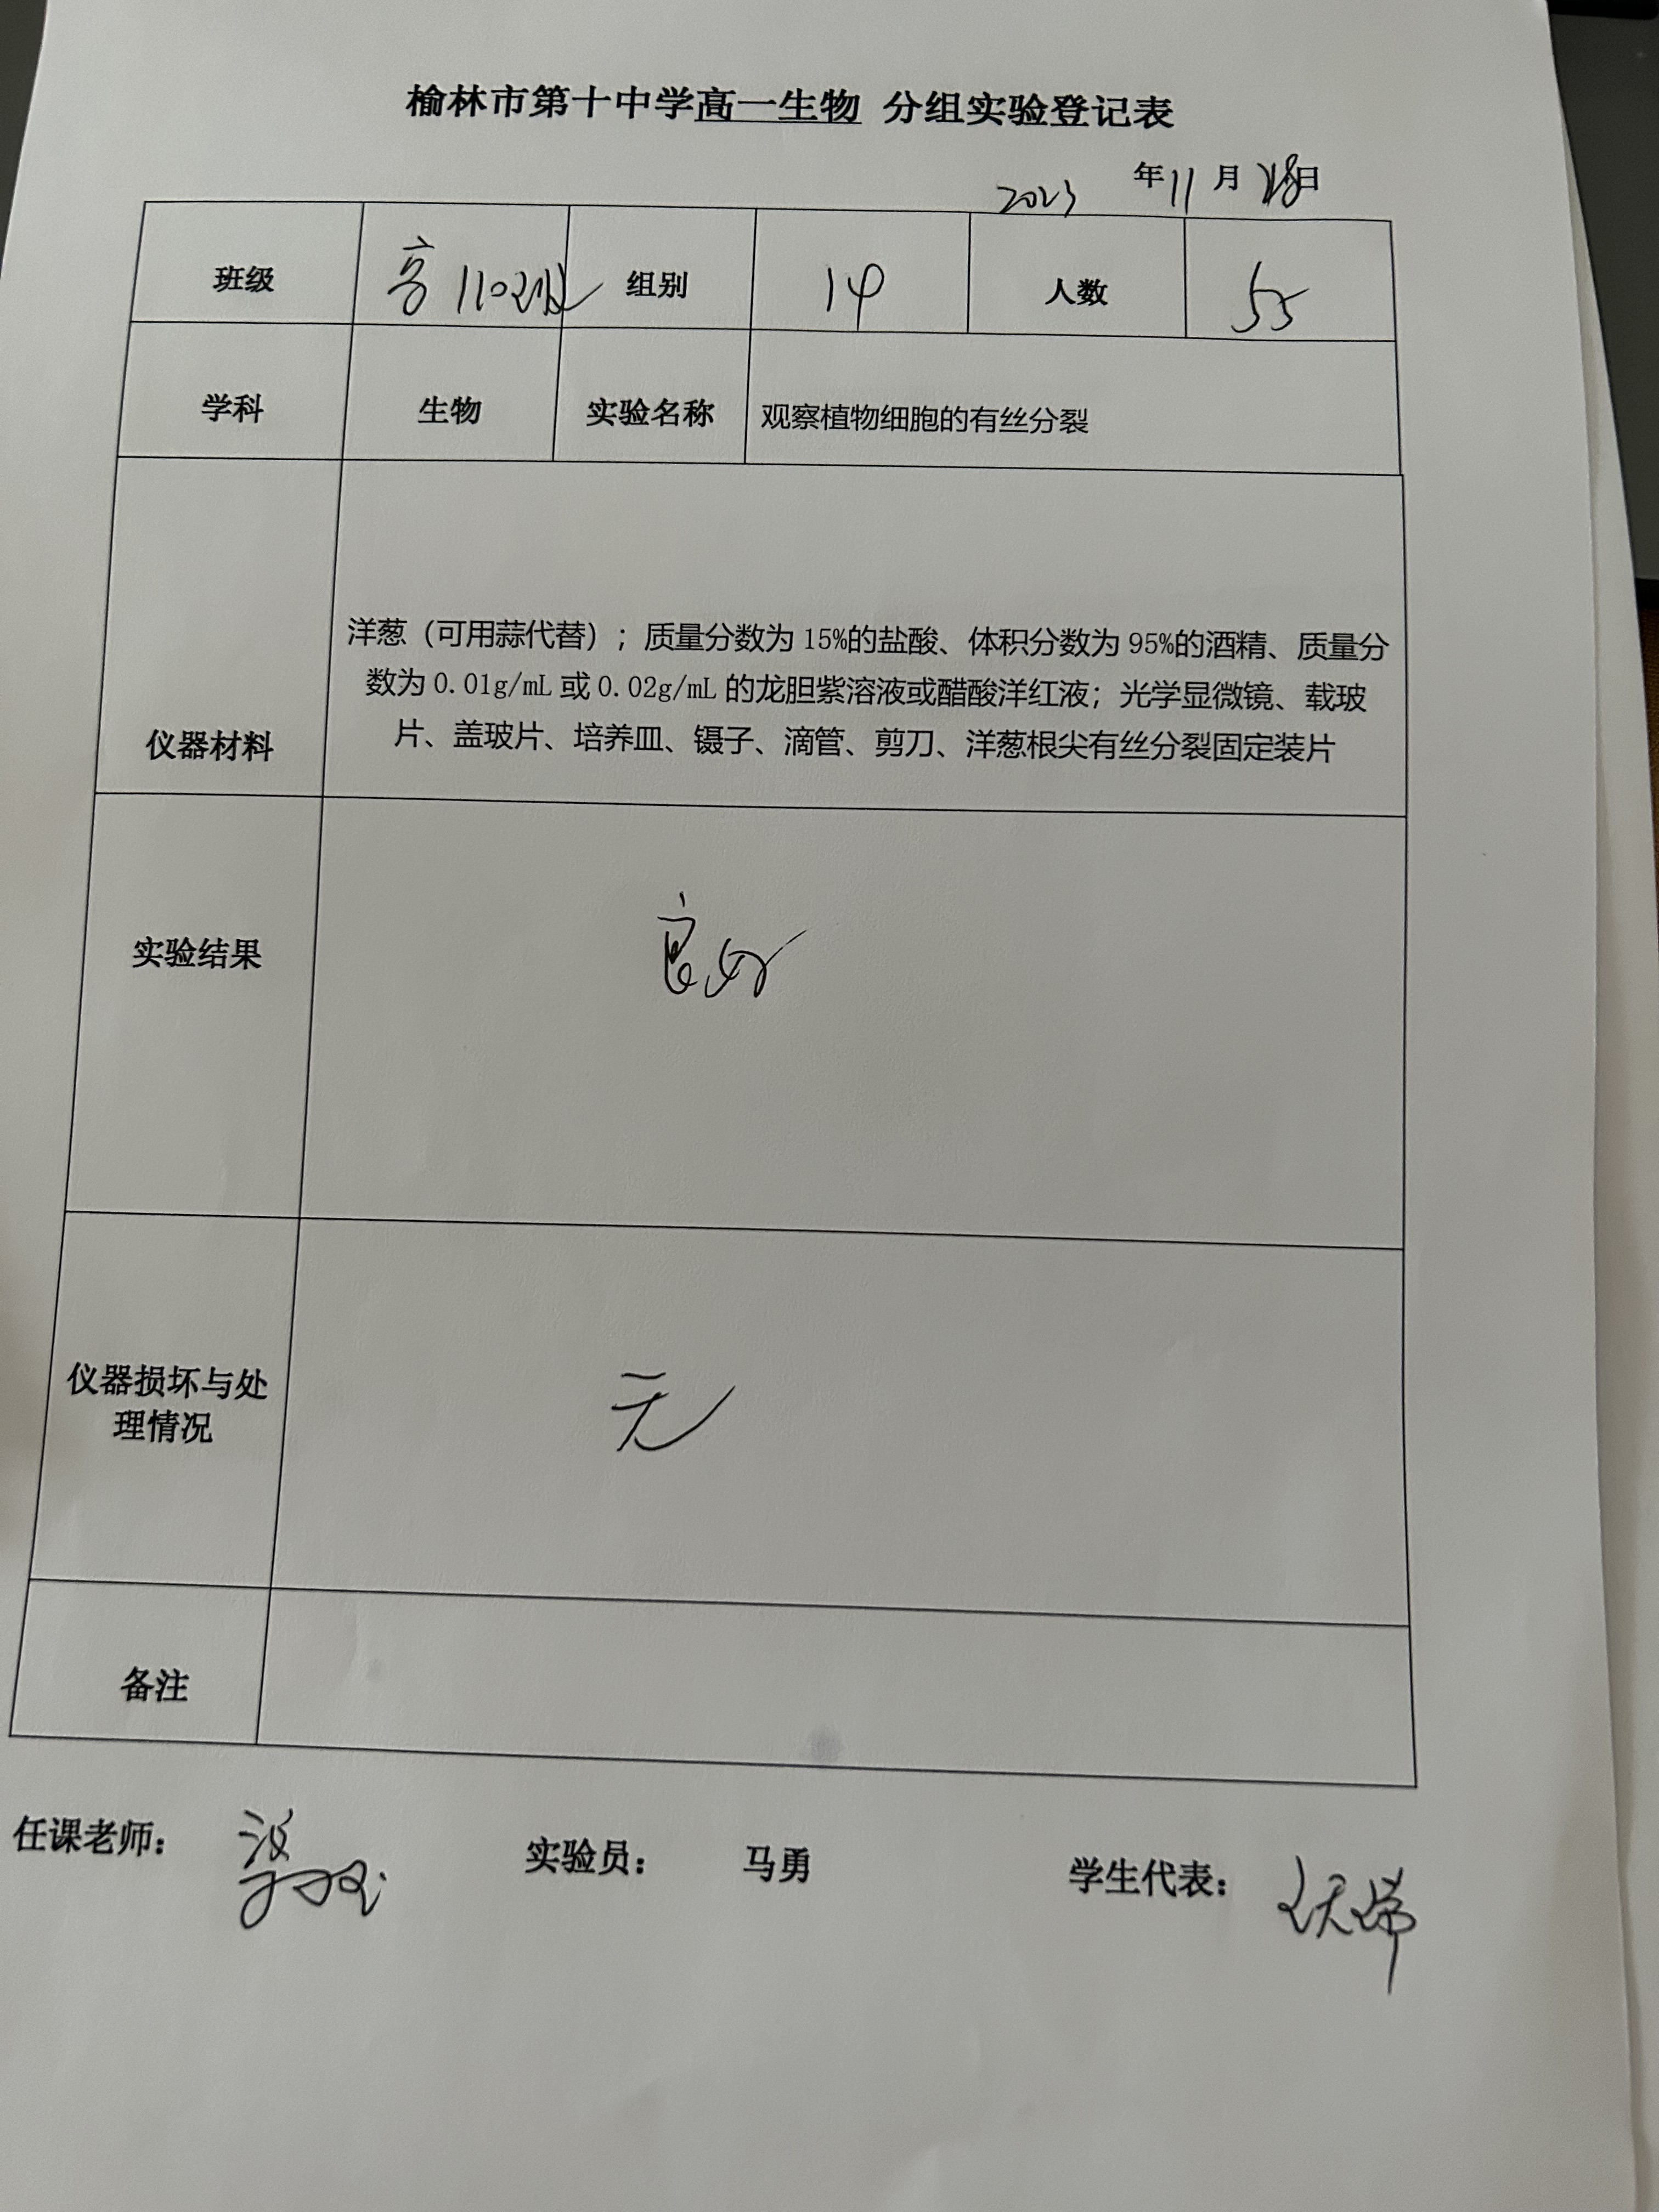 榆林市第十中学高一生物 分组实验登记表
2023 年 11 月 28 日
班级 高1102班 组别 14 人数 55
学科 生物 实验名称 观察植物细胞的有丝分裂
洋葱（可用蒜代替）；质量分数为 15%的盐酸、体积分数为 95%的酒精、质量分
数为 0.01g/mL 或 0.02g/mL 的龙胆紫溶液或醋酸洋红液；光学显微镜、载玻
片、盖玻片、培养皿、镊子、滴管、剪刀、洋葱根尖有丝分裂固定装片
仪器材料
实验结果 良好
仪器损坏与处
理情况
无
备注
任课老师： 实验员： 马勇 学生代表：